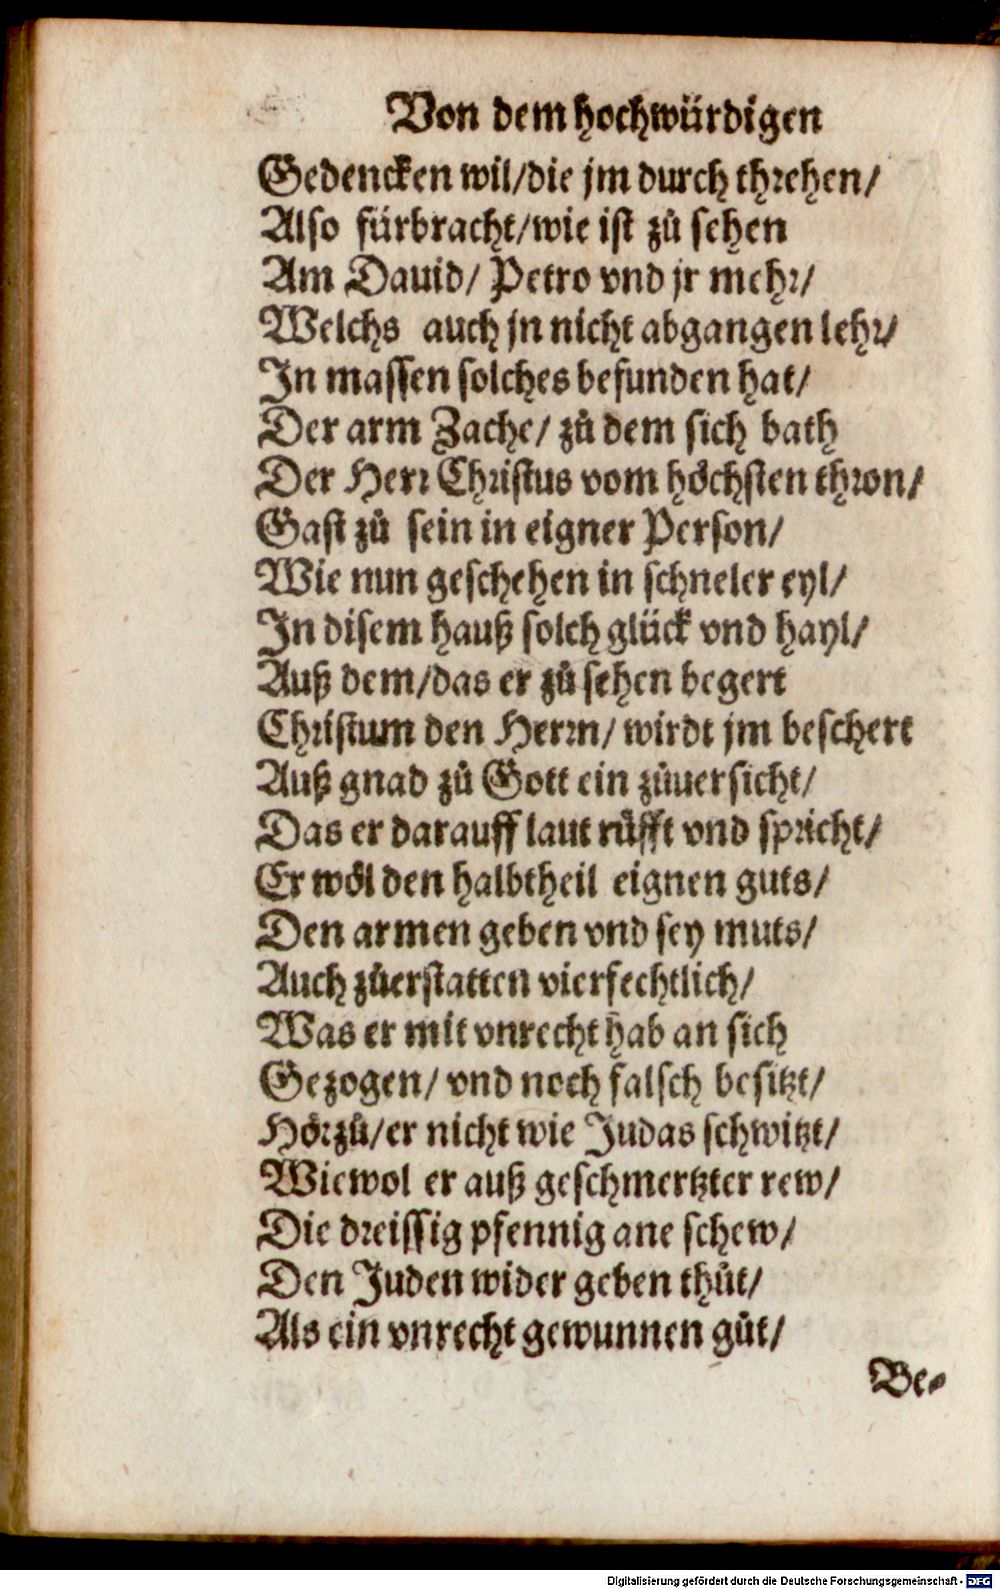 Von dem hochwürdigen
Gedencken wil/die jm durch threhen/
Also fürbracht/wie ist zů sehen
Am Dauid/ Petro vnd jr mehr/
Welchs auch jn nicht abgangen lehr/
In massen solches befunden hat/
Der arm Zache/ zů dem sich bath
Der Herr Christus vom höchsten thron/
Gast zů sein in eigner Person/
Wie nun geschehen in schneler eyl/
In disem hauß solch glück vnd hayl/
Auß dem/das er zů sehen begert
Christum den Herrn/ wirdt jm beschert
Auß gnad zů Gott ein zůuersicht/
Das er darauff laut růfft vnd spricht/
Er wöl den halbtheil eignen guts/
Den armen geben vnd sey muts/
Auch zůerstatten vierfechtlich/
Was er mit vnrecht hab an sich
Gezogen/ vnd noch falsch besitzt/
Hörzů/er nicht wie Judas schwitzt/
Wiewol er auß geschmertzter rew/
Die dreissig pfennig ane schew/
Den Juden wider geben thůt/
Als ein vnrecht gewunnen gůt/
Be-
Digitalisierung gefördert durch die Deutsche Forschungsgemeinschaft - DFG